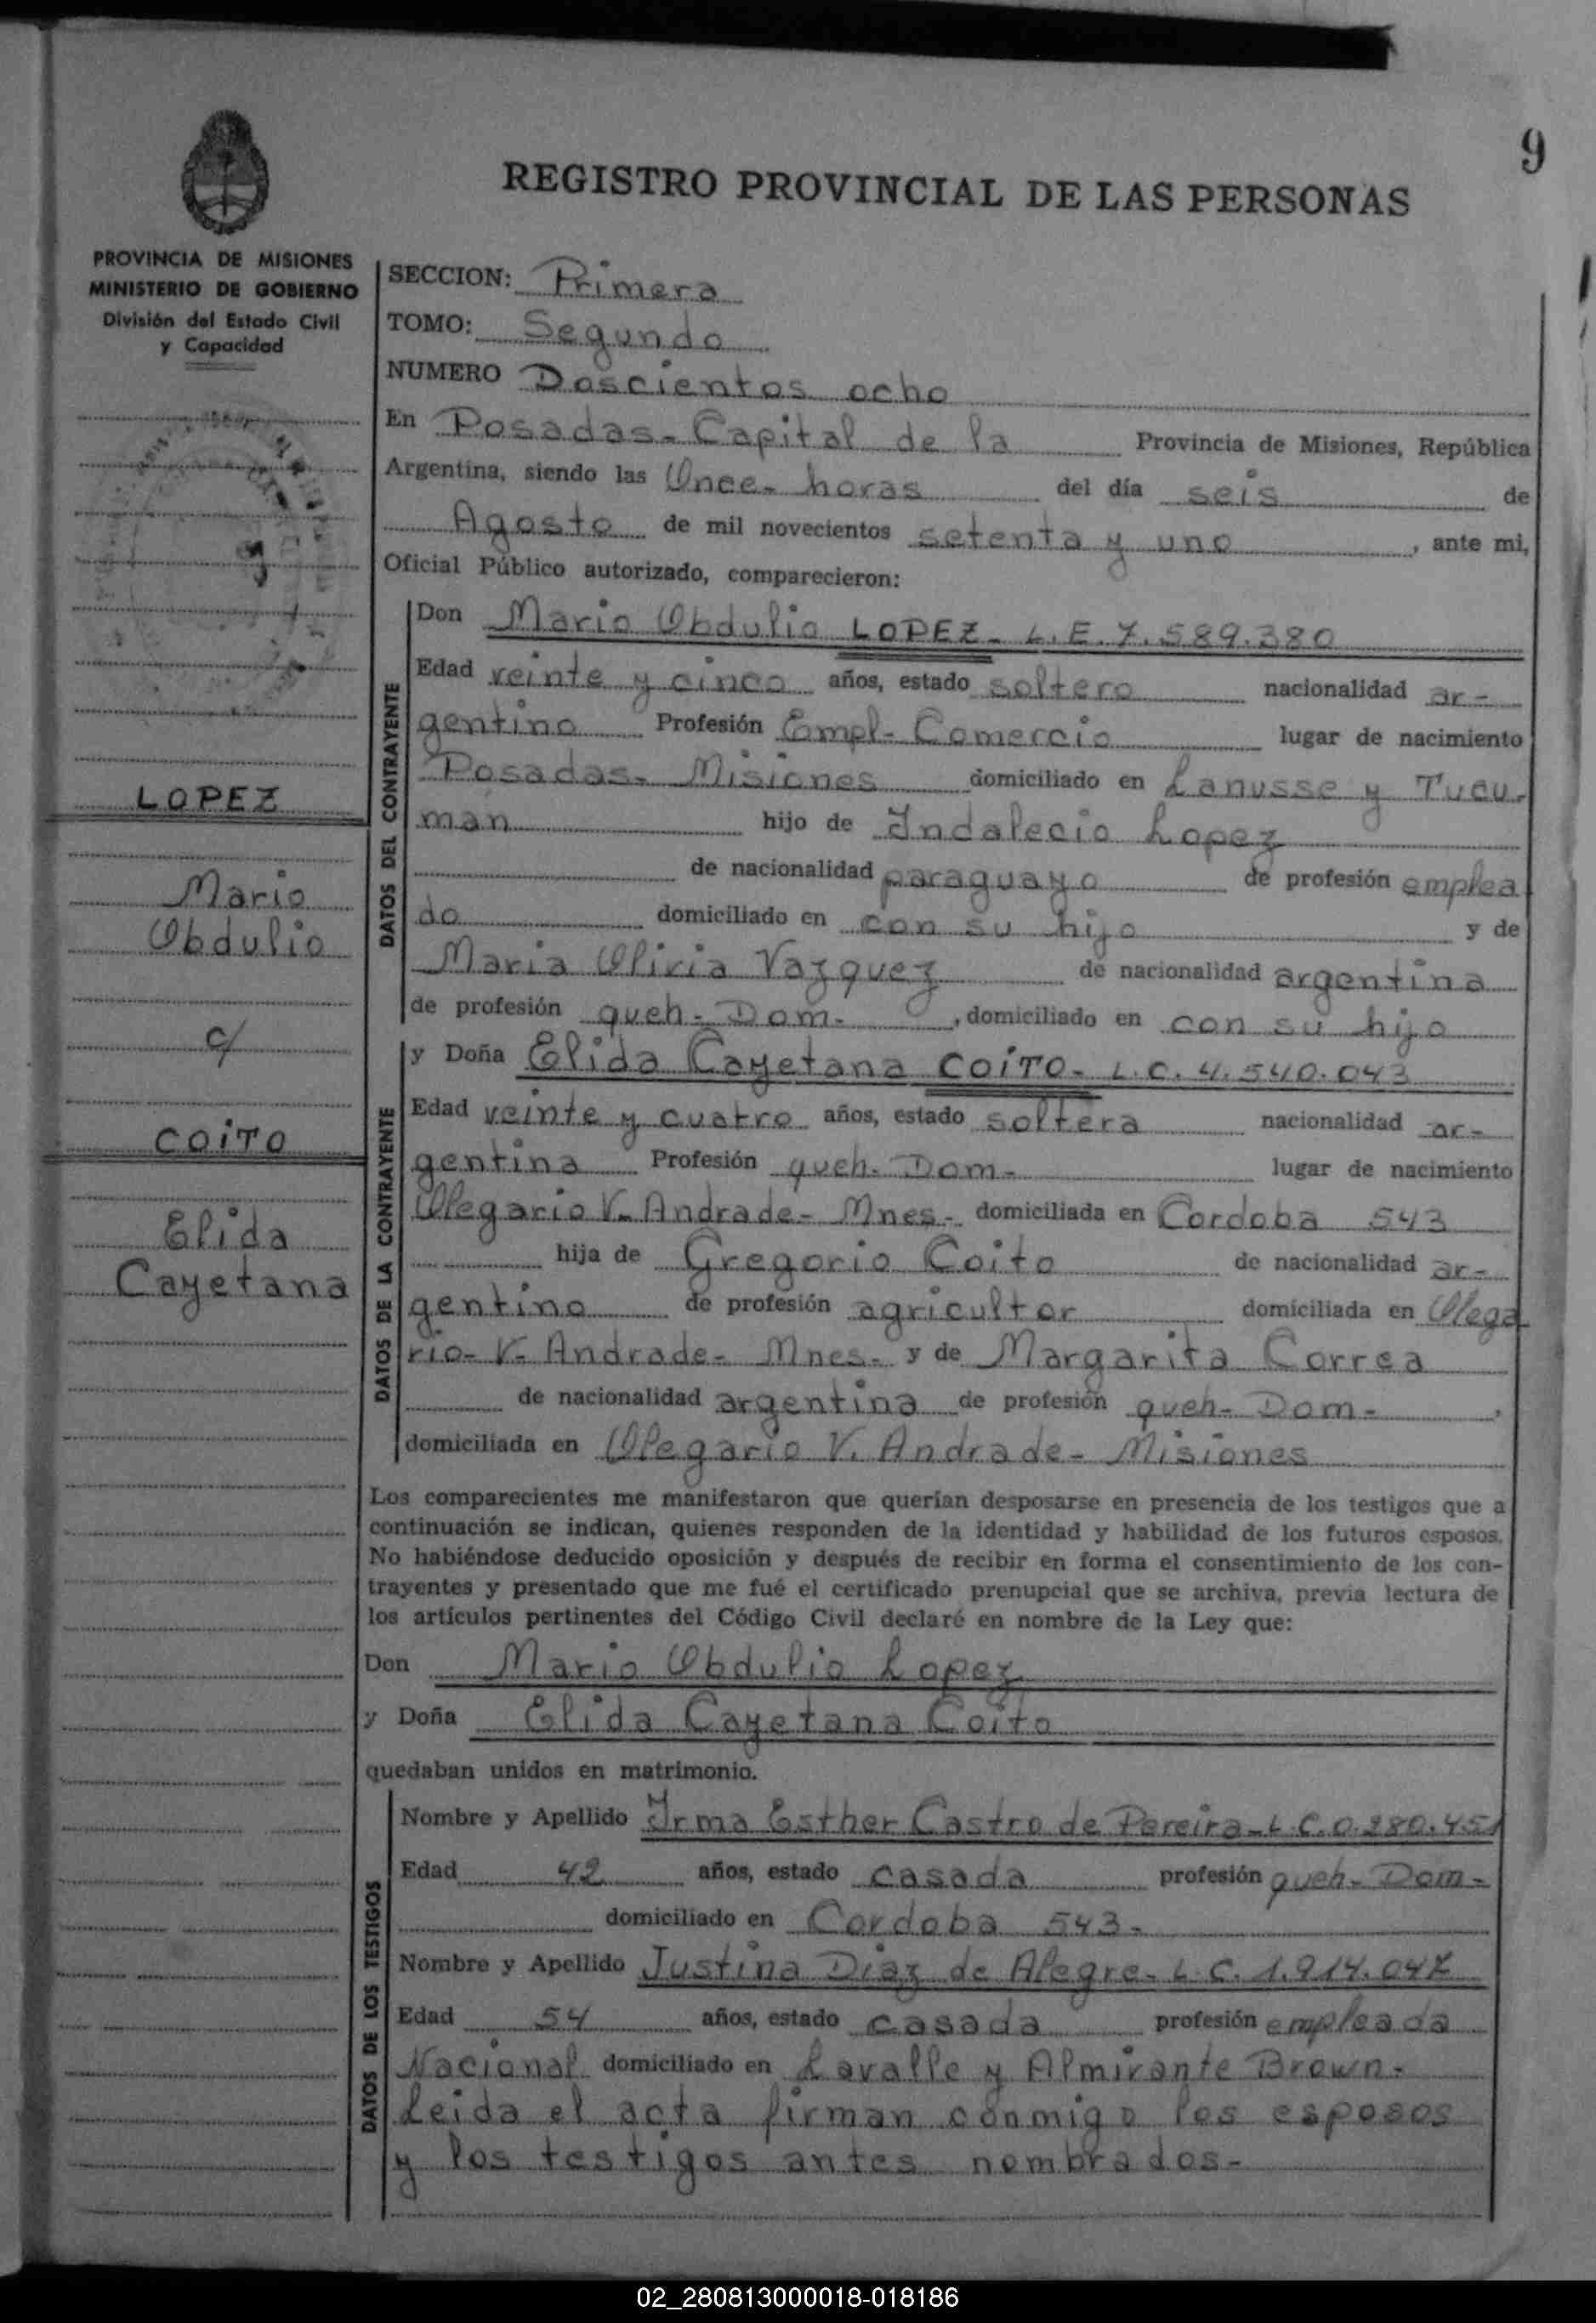 9
REGISTRO PROVINCIAL DE LAS PERSONAS
PROVINCIA DE MISIONES
MINISTERIO DE GOBIERNO
División del Estado Civil
y Capacidad
LOPEZ
Mario
Obdulio
c/
COiTO
Elida
Cayetana
SECCION: Primera
TOMO: Segundo
NUMERO Doscientos ocho
En Posadas - Capital de la Provincia de Misiones, República
Argentina, siendo las Once - horas del día seis de
Agosto de mil novecientos setenta y uno, ante mi,
Oficial Público autorizado, comparecieron:
DATOS DEL CONTRAYENTE
Don Mario Obdulio LOPEZ - L.E. 7.589.380
Edad veinte y cinco años, estado soltero nacionalidad ar-
gentino Profesión Empl - Comercio lugar de nacimiento
Posadas - Misiones domiciliado en Lanusse y Tucu-
man hijo de Indalecio Lopez
de nacionalidad paraguayo de profesión emplea
do domiciliado en con su hijo y de
Maria Oliria Vazquez de nacionalidad argentina
de profesión queh - Dom -, domiciliado en con su hijo
DATOS DE LA CONTRAYENTE
y Doña Elida Cayetana COíTO - L.C. 4.540.043
Edad veinte y cuatro años, estado soltera nacionalidad ar-
gentina Profesión queh - Dom - lugar de nacimiento
Olegario V. Andrade - Mnes - domiciliada en Cordoba 543
hija de Gregorio Coito de nacionalidad ar-
gentino de profesión agricultor domiciliada en Olega
rio - V - Andrade - Mnes - y de Margarita Correa
de nacionalidad argentina de profesión queh - Dom -,
domiciliada en Olegario V. Andrade - Misiones
Los comparecientes me manifestaron que querían desposarse en presencia de los testigos que a
continuación se indican, quienes responden de la identidad y habilidad de los futuros esposos.
No habiéndose deducido oposición y después de recibir en forma el consentimiento de los con-
trayentes y presentado que me fué el certificado prenupcial que se archiva, previa lectura de
los artículos pertinentes del Código Civil declaré en nombre de la Ley que:
Don Mario Obdulio Lopez
y Doña Elida Cayetana Coito
quedaban unidos en matrimonio.
DATOS DE LOS TESTIGOS
Nombre y Apellido Irma Esther Castro de Pereira - L.C. 0.280.451
Edad 42 años, estado casada profesión queh - Dom -
domiciliado en Cordoba 543 -
Nombre y Apellido Justina Diaz de Alegre - L.C. 1.914.047
Edad 54 años, estado casada profesión empleada
Nacional domiciliado en Lavalle y Almirante Brown -
Leida el acta firman conmigo los esposos
y los testigos antes nombrados -
02_280813000018-018186